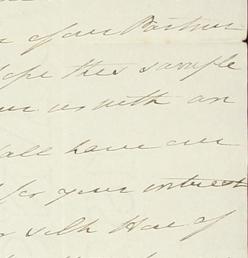 of our Partner
hope this sample
us with an
shall have our
for your interest
silk Hose of